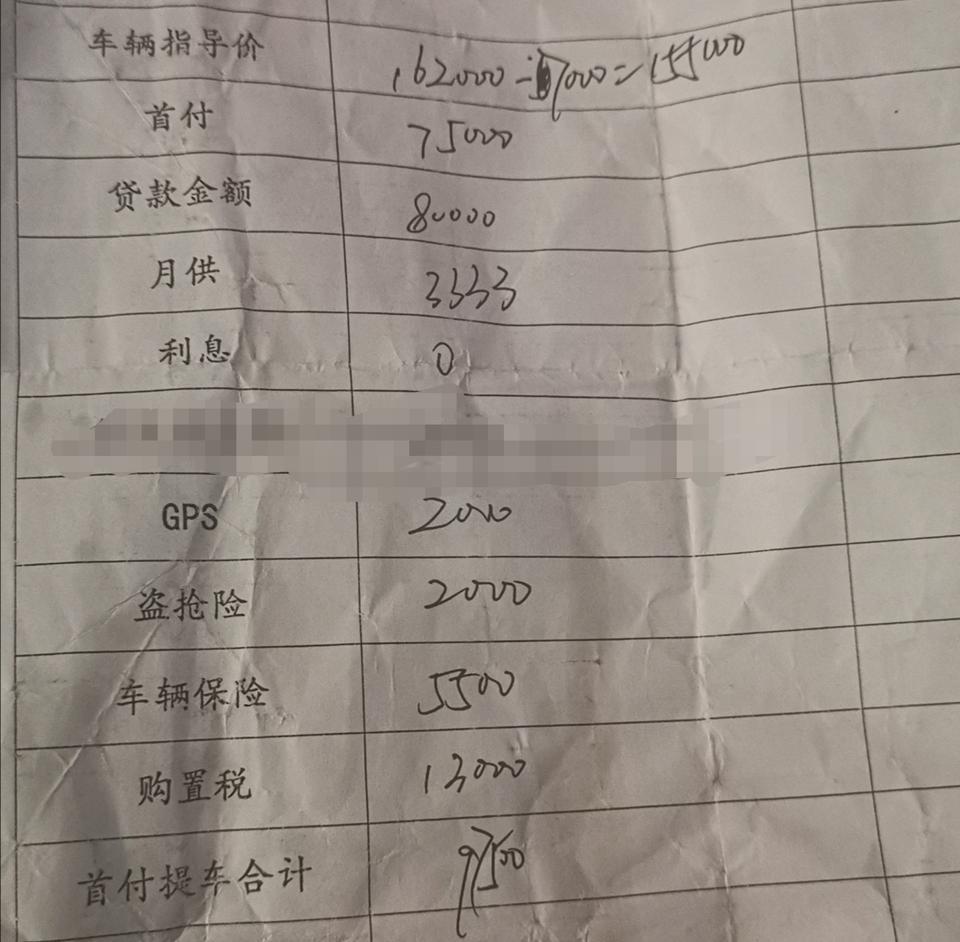 车辆指导价 162000-7000=155000
首付 75000
贷款金额 80000
月供 3333
利息 0
GPS 2000
盗抢险 2000
车辆保险 5500
购置税 13000
首付提车合计 97500